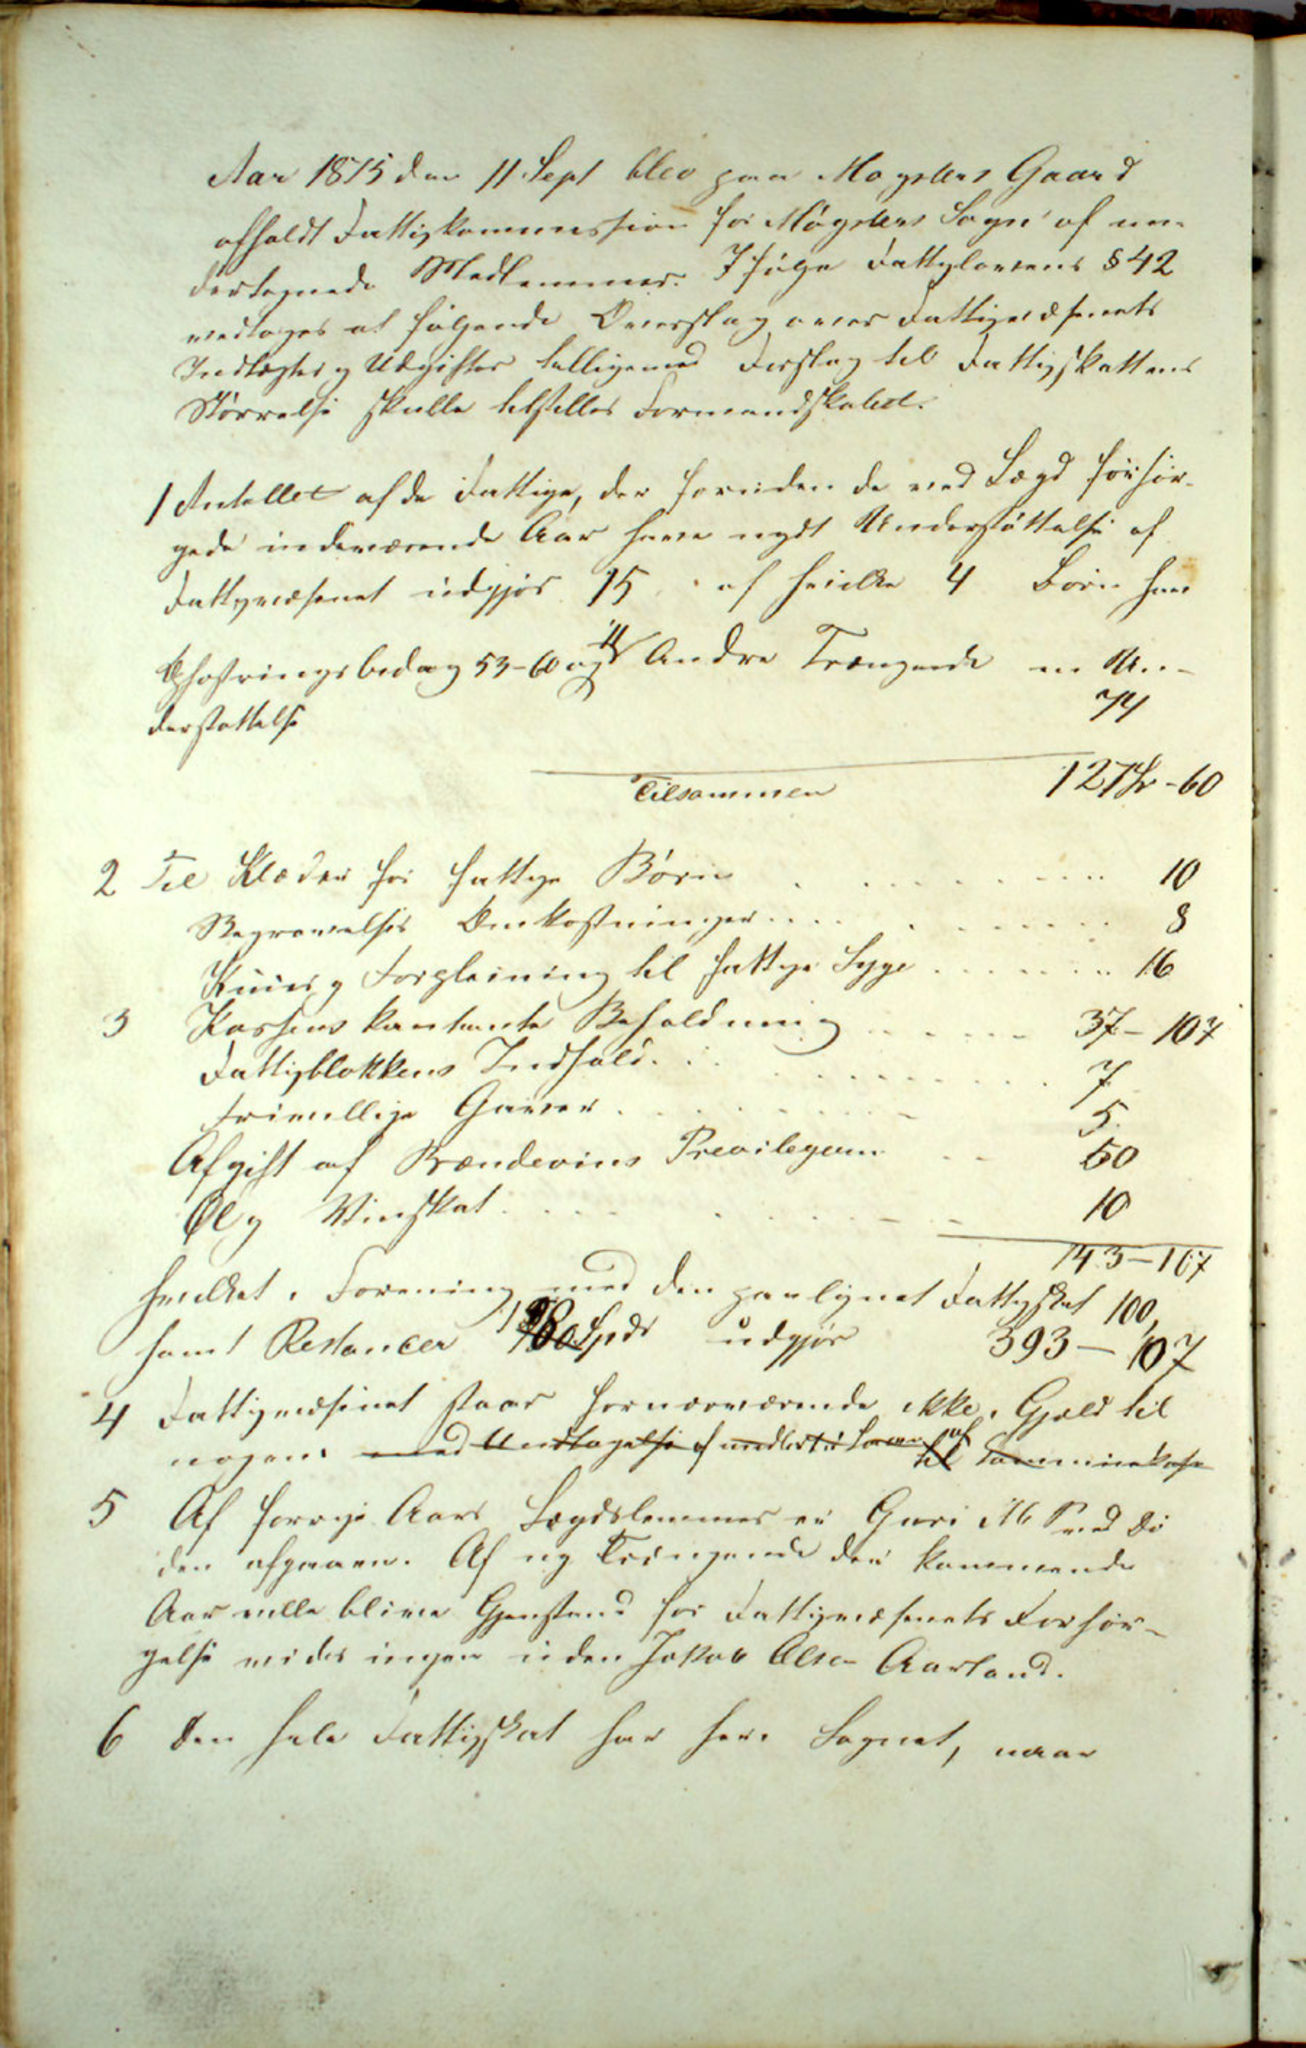 Aar 1875 den 11 Sept blev paa Møgsters Gaard
afholdt Fattigkommission for Møgsters Sogn af un-
dertegnede Medlemmer. Ifølge Fattiglovens § 42
vedtoges at følgende Overslag over Fattigvæsenets
Indtægter og Udgifter tilligemed Forslag til Fattigskattens
Størrelse skulle tilstilles Formandskabet.
1 Antallet af de Fattige, der foruden de ved Lægd forsør-
gede indeværende Aar have nydt Understøttelse af
Fattigvæsenet udgjør 15 af hvilke 4 Børn have
Opfostringsbidrag 53-60 og 11 Andre Trængende en Un-
derstøttelse 74
Tilsammen 127 - 60
2 Til Klæder for fattige Børn 10
Begravelses Omkostninger 8
Kuur og Forpleining til fattige Syge 16
3 Kassens kontante Beholdning 37 - 107
Fattigblokkens Indhold 7
Frivillige Gaver 5
Afgift af Brændevins Previlegium 50
Øl og Vinskat 10
143 - 107
hvilket i Forening med den paalignet Fattigskat 100,
samt Restancer Spdr udgjør 393 - 107
4 Fattigvæsenet staar fornærværende ikke i Gjæld til
nogen. med Undtagelse af til Kommunekasse
5 Af forrige Aars Lægdslemmer er Guri ved Dø
den afgaaen. Af ny Trængende der kommende
Aar ville blive Gjenstand for Fattigvæsenets Forsør-
gelse vides ingen uden Jakob Olsen Aarland.
6 Den hele Fattigskat for heri Sognet, naar